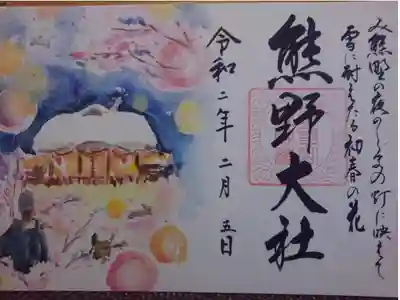 み熊野の夜のしじまの灯に映えて
雪に耐えたる初春の花
熊野大社
令和二年二月五日